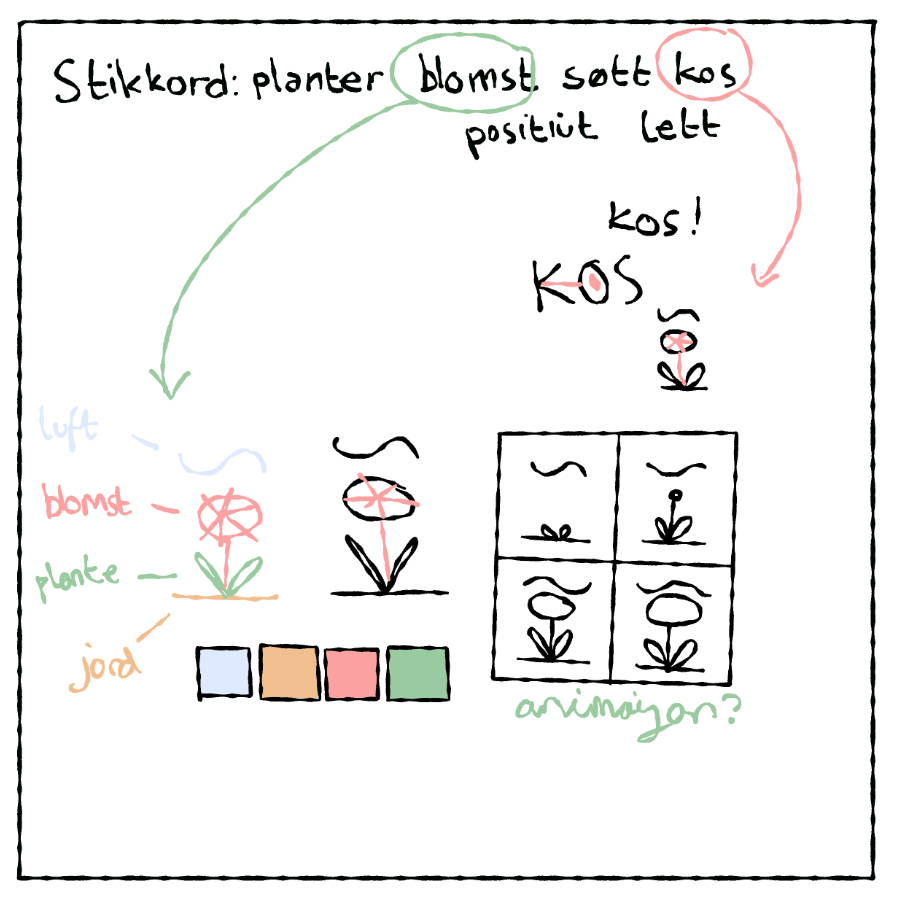 Stikkord: planter blomst søtt kos
positivt lett
kos!
KOS
luft
blomst
plante
jord
animasjon?